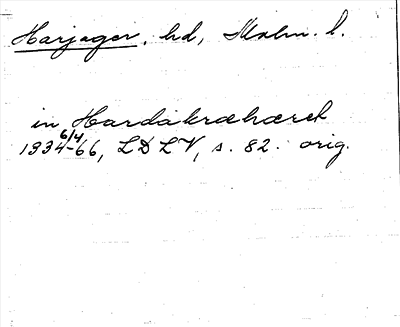 Harjager, hd, Malm. l.
in Hardakrahæret
1934 6/4 -66, LDLV, s. 82. orig.